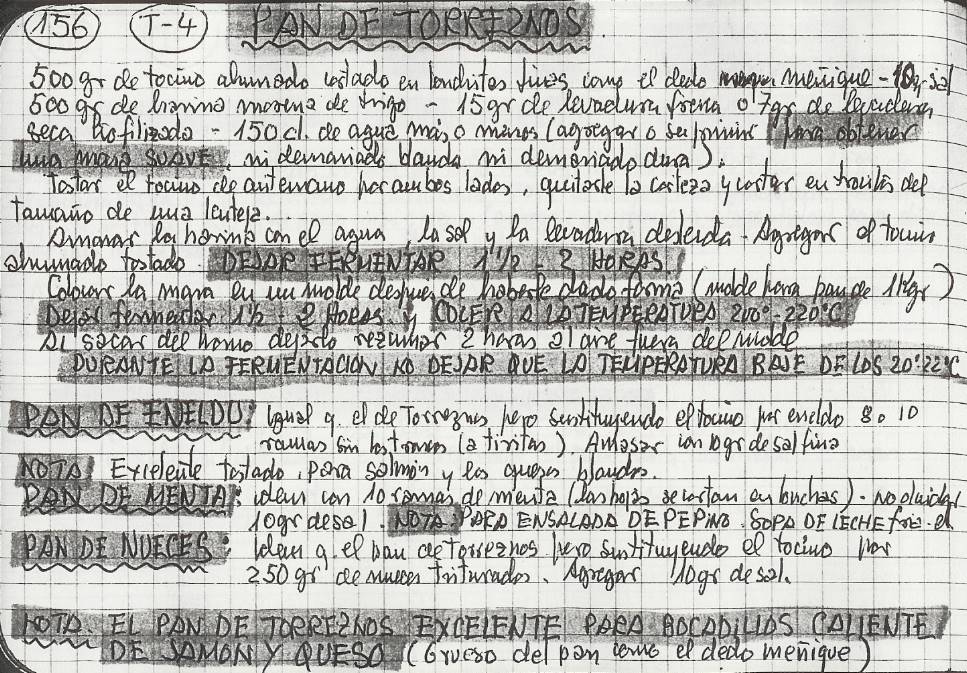 156 T-4 PAN DE TORREZNOS
500 gr de tocino ahumado tostado en londritas finas como el dedo meñique - 10 gr sal
500 gr de harina morena de trigo - 15 gr de levadura fresca o 7 gr de levadura
seca liofilizada - 150 cl. de agua más o menos (agregar o suprimir para obtener
una masa SUAVE, ni demasiado blanda ni demasiado dura).
Tostar el tocino de antemano por ambos lados, quitarle la corteza y cortar en trocitos del
tamaño de una lenteja...
Amasar la harina con el agua, la sal y la levadura desleída - Agregar el tocino
ahumado tostado DEJAR FERMENTAR 1 1/2 - 2 HORAS.
Colocar la masa en un molde después de haberle dado forma (molde para pan de 1 Kgr)
Dejar fermentar 1 1/2 - 2 HORAS y COCER A LA TEMPERATURA 200°-220°C
Al sacar del horno dejarlo rezumar 2 horas al aire fuera del molde
DURANTE LA FERMENTACION NO DEJAR QUE LA TEMPERATURA BAJE DE LOS 20°-22°C
PAN DE ENELDO: Igual q. el de Torreznos pero sustituyendo el tocino por eneldo 8 o 10
ramas sin los troncos (a tiritas). Amasar con 10 gr de sal fina
NOTA: Excelente tostado, para salmón y los quesos blandos.
PAN DE MENTA: idem con 10 ramas de menta (las hojas se cortan en) - no olvidar
10 gr de sal. NOTA: PARA ENSALADA DE PEPINO. SOPA DE LECHE fría
PAN DE NUECES: Idem q. el pan de torreznos pero sustituyendo el tocino por
250 gr de nueces trituradas. Agregar 10 gr de sal.
NOTA. EL PAN DE TORREZNOS EXCELENTE PARA BOCADILLOS CALIENTE
DE JAMON Y QUESO (Grueso del pan como el dedo meñique)